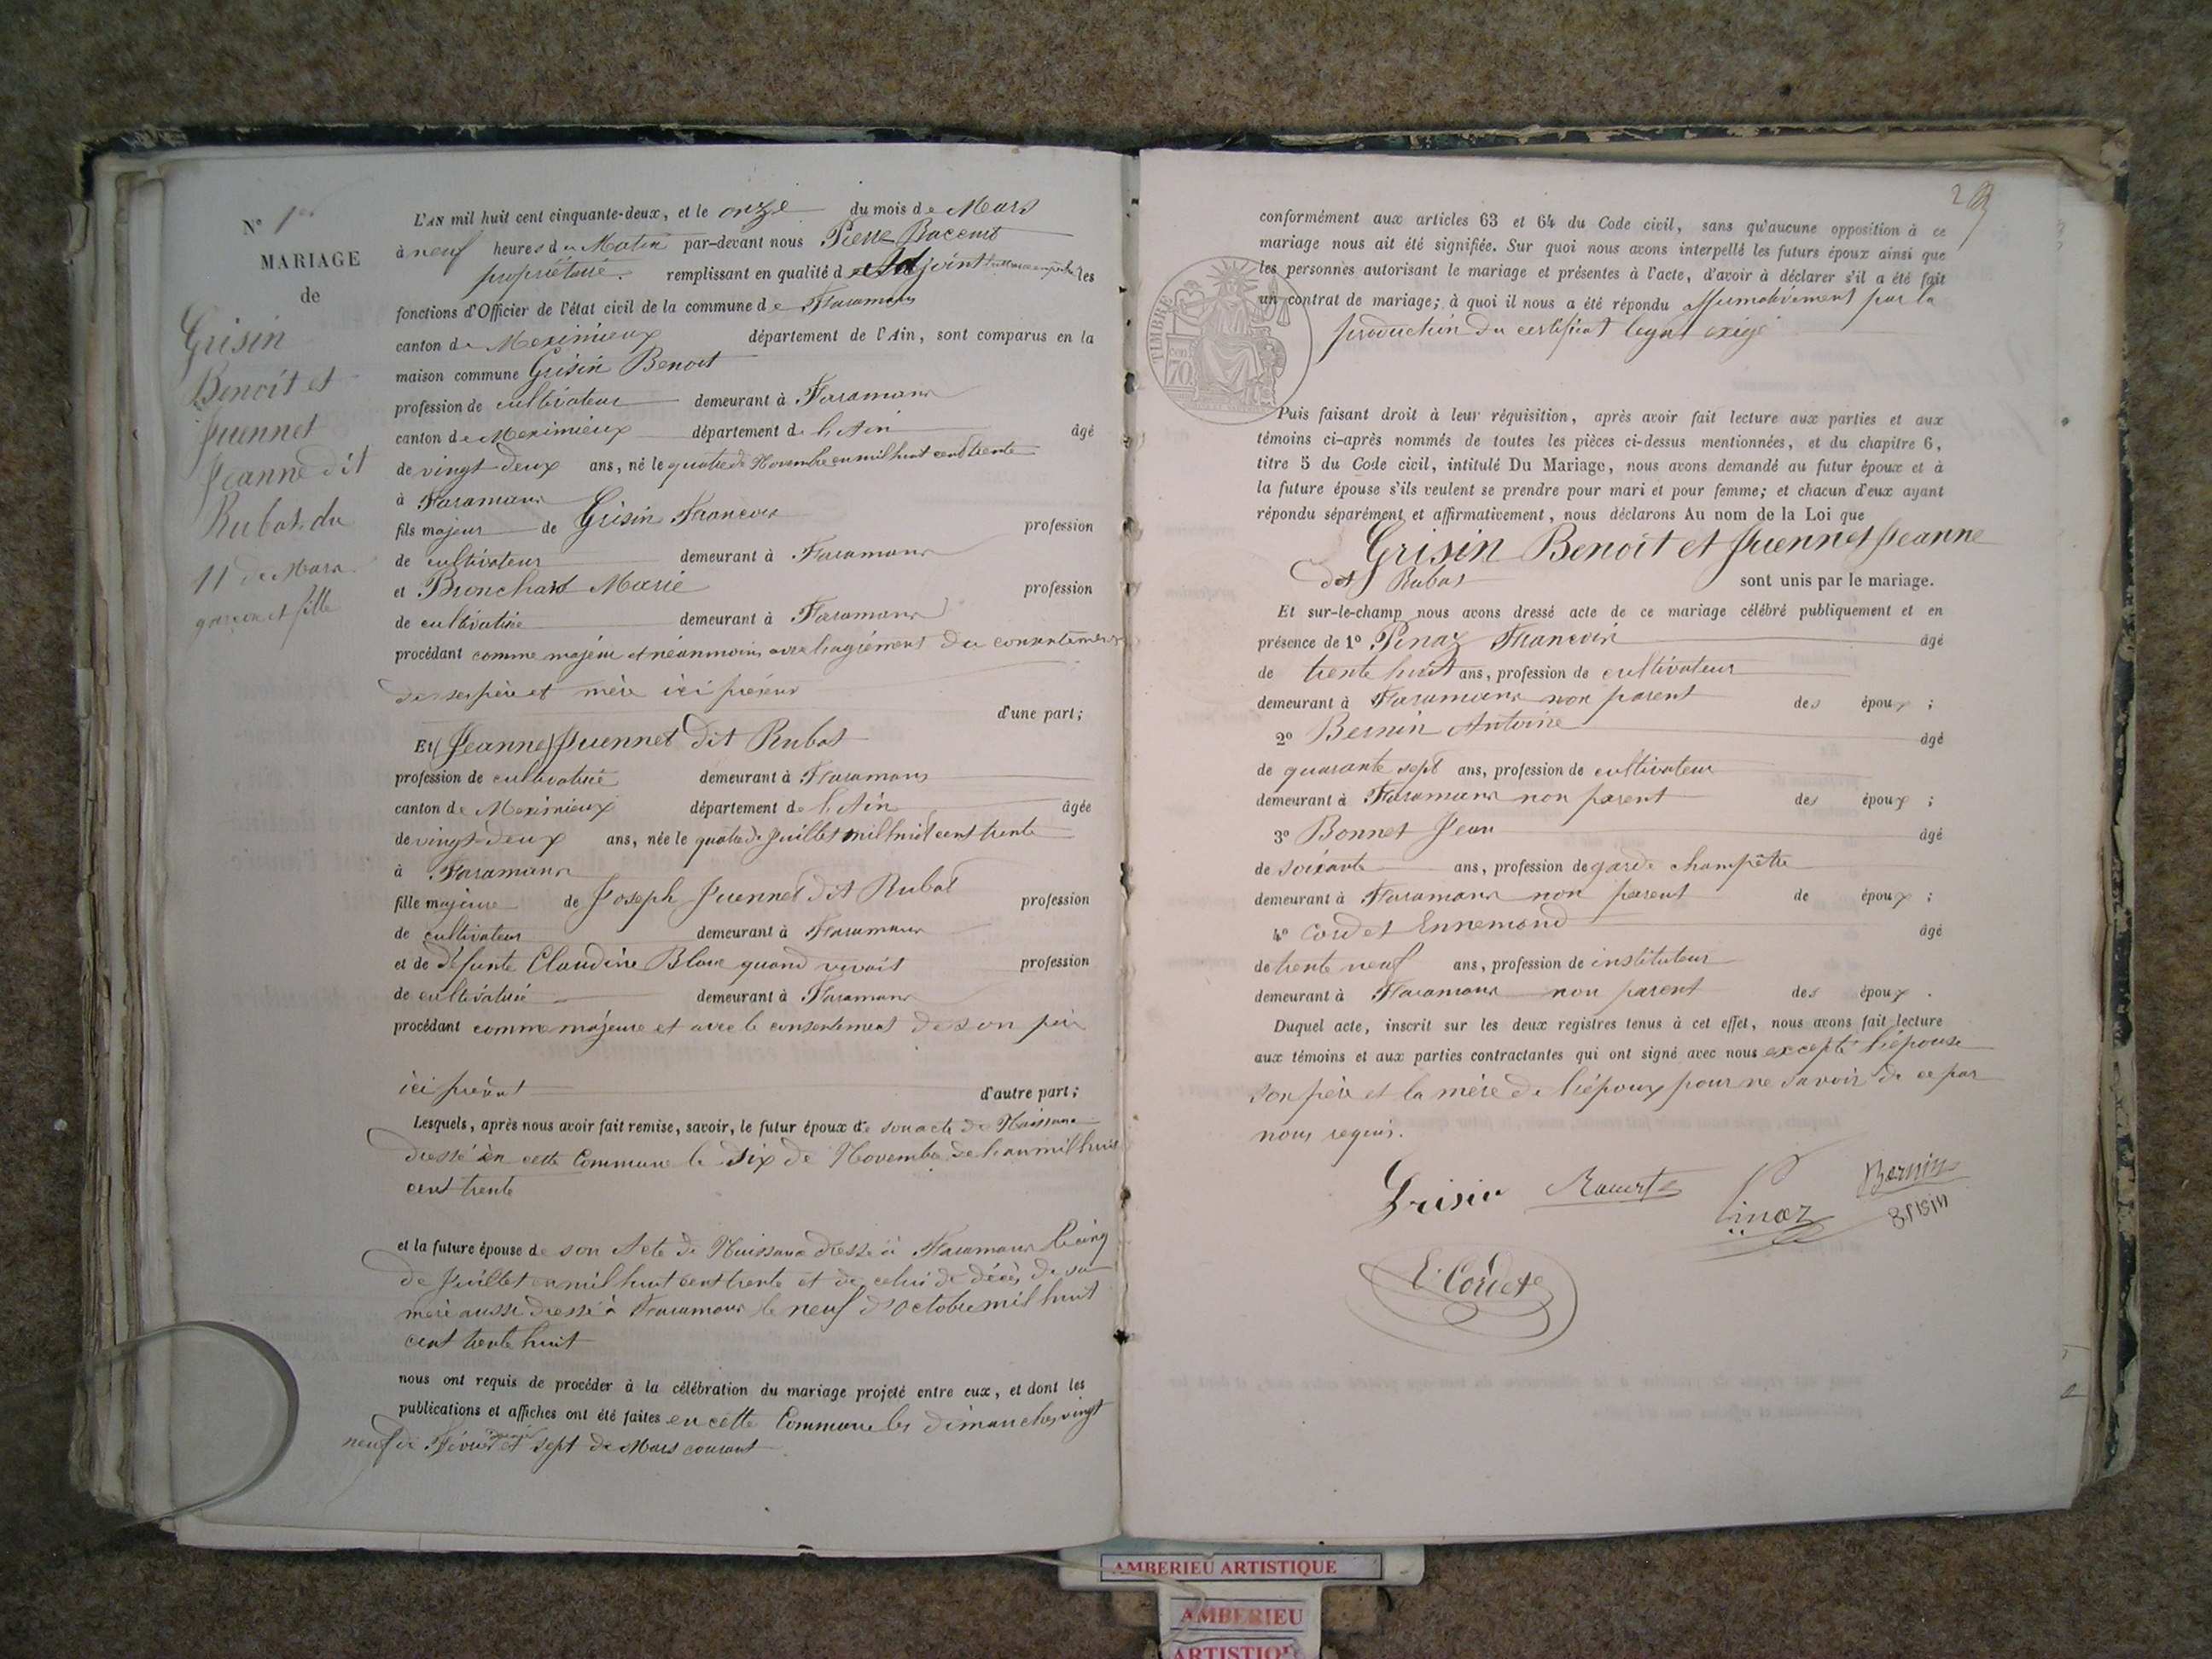 N° 1er
MARIAGE
de
Grisin
Benoit et
Juennet
Jeanne dit
Rubat du
11 de Mars
garçon et fille
L'AN mil huit cent cinquante-deux, et le onze du mois de Mars
à neuf heures du Matin par-devant nous Pierre
propriétaire remplissant en qualité d'Adjoint les
fonctions d'Officier de l'état civil de la commune de Faramans
canton de Meximieux département de l'Ain, sont comparus en la
maison commune Grisin Benoit
profession de cultivateur demeurant à Faramans
canton de Meximieux département de l'Ain âgé
de vingt deux ans, né le quatre de Novembre en mil huit cent trente
à Faramans
fils majeur de Grisin Francois profession
de cultivateur demeurant à Faramans
et Bronchard Marie profession
de cultivatrice demeurant à Faramans
procédant comme majeur et néanmoins avec l'agrément du consentement
de ses père et mère ici présens
d'une part;
Et (Jeanne) Juennet dit Rubat
profession de cultivatrice demeurant à Faramans
canton de Meximieux département de l'Ain âgée
de vingt deux ans, née le quatre de Juillet mil huit cent trente
à Faramans
fille majeure de Joseph Juennet dit Rubat profession
de cultivateur demeurant à Faramans
et de défunte Claudine Blanc quand vivait profession
de cultivatrice demeurant à Faramans
procédant comme majeure et avec le consentement de son père
ici présent d'autre part;
Lesquels, après nous avoir fait remise, savoir, le futur époux de son acte de Naissance
dressé en cette Commune le six de Novembre de l'an mil huit
cent trente
et la future épouse de son Acte de Naissance dressé à Faramans le cinq
de Juillet en mil huit cent trente et de celui de décès de sa
mère aussi dressé à Faramans le neuf d'octobre mil huit
cent trente huit
nous ont requis de procéder à la célébration du mariage projeté entre eux, et dont les
publications et affiches ont été faites en cette Commune les dimanches vingt
neuf de Février et sept de Mars courant
conformément aux articles 63 et 64 du Code civil, sans qu'aucune opposition à ce
mariage nous ait été signifiée. Sur quoi nous avons interpellé les futurs époux ainsi que
les personnes autorisant le mariage et présentes à l'acte, d'avoir à déclarer s'il a été fait
un contrat de mariage; à quoi il nous a été répondu affirmativement par la
production du certificat légal exigé
TIMBRE
70
Puis faisant droit à leur réquisition, après avoir fait lecture aux parties et aux
témoins ci-après nommés de toutes les pièces ci-dessus mentionnées, et du chapitre 6,
titre 5 du Code civil, intitulé Du Mariage, nous avons demandé au futur époux et à
la future épouse s'ils veulent se prendre pour mari et pour femme; et chacun d'eux ayant
répondu séparément et affirmativement, nous déclarons Au nom de la Loi que
Grisin Benoit et Juennet Jeanne
dit Rubat sont unis par le mariage.
Et sur-le-champ nous avons dressé acte de ce mariage célébré publiquement et en
présence de 1° Pinaz Francois âgé
de trente huit ans, profession de cultivateur
demeurant à Faramans non parent des époux ;
2° Bernin Antoine âgé
de quarante sept ans, profession de cultivateur
demeurant à Faramans non parent des époux ;
3° Bonnet Jean âgé
de soixante ans, profession de garde champêtre
demeurant à Faramans non parent de époux ;
4° Cordet Ennemond âgé
de trente neuf ans, profession de instituteur
demeurant à Faramans non parent des époux .
Duquel acte, inscrit sur les deux registres tenus à cet effet, nous avons fait lecture
aux témoins et aux parties contractantes qui ont signé avec nous excepté l'épouse
son père et la mère de l'époux pour ne savoir de ce par
nous requis.
Grisin
Pinaz Bernin
Grisin
E. Cordet
AMBERIEU ARTISTIQUE
AMBERIEU
ARTISTIQ